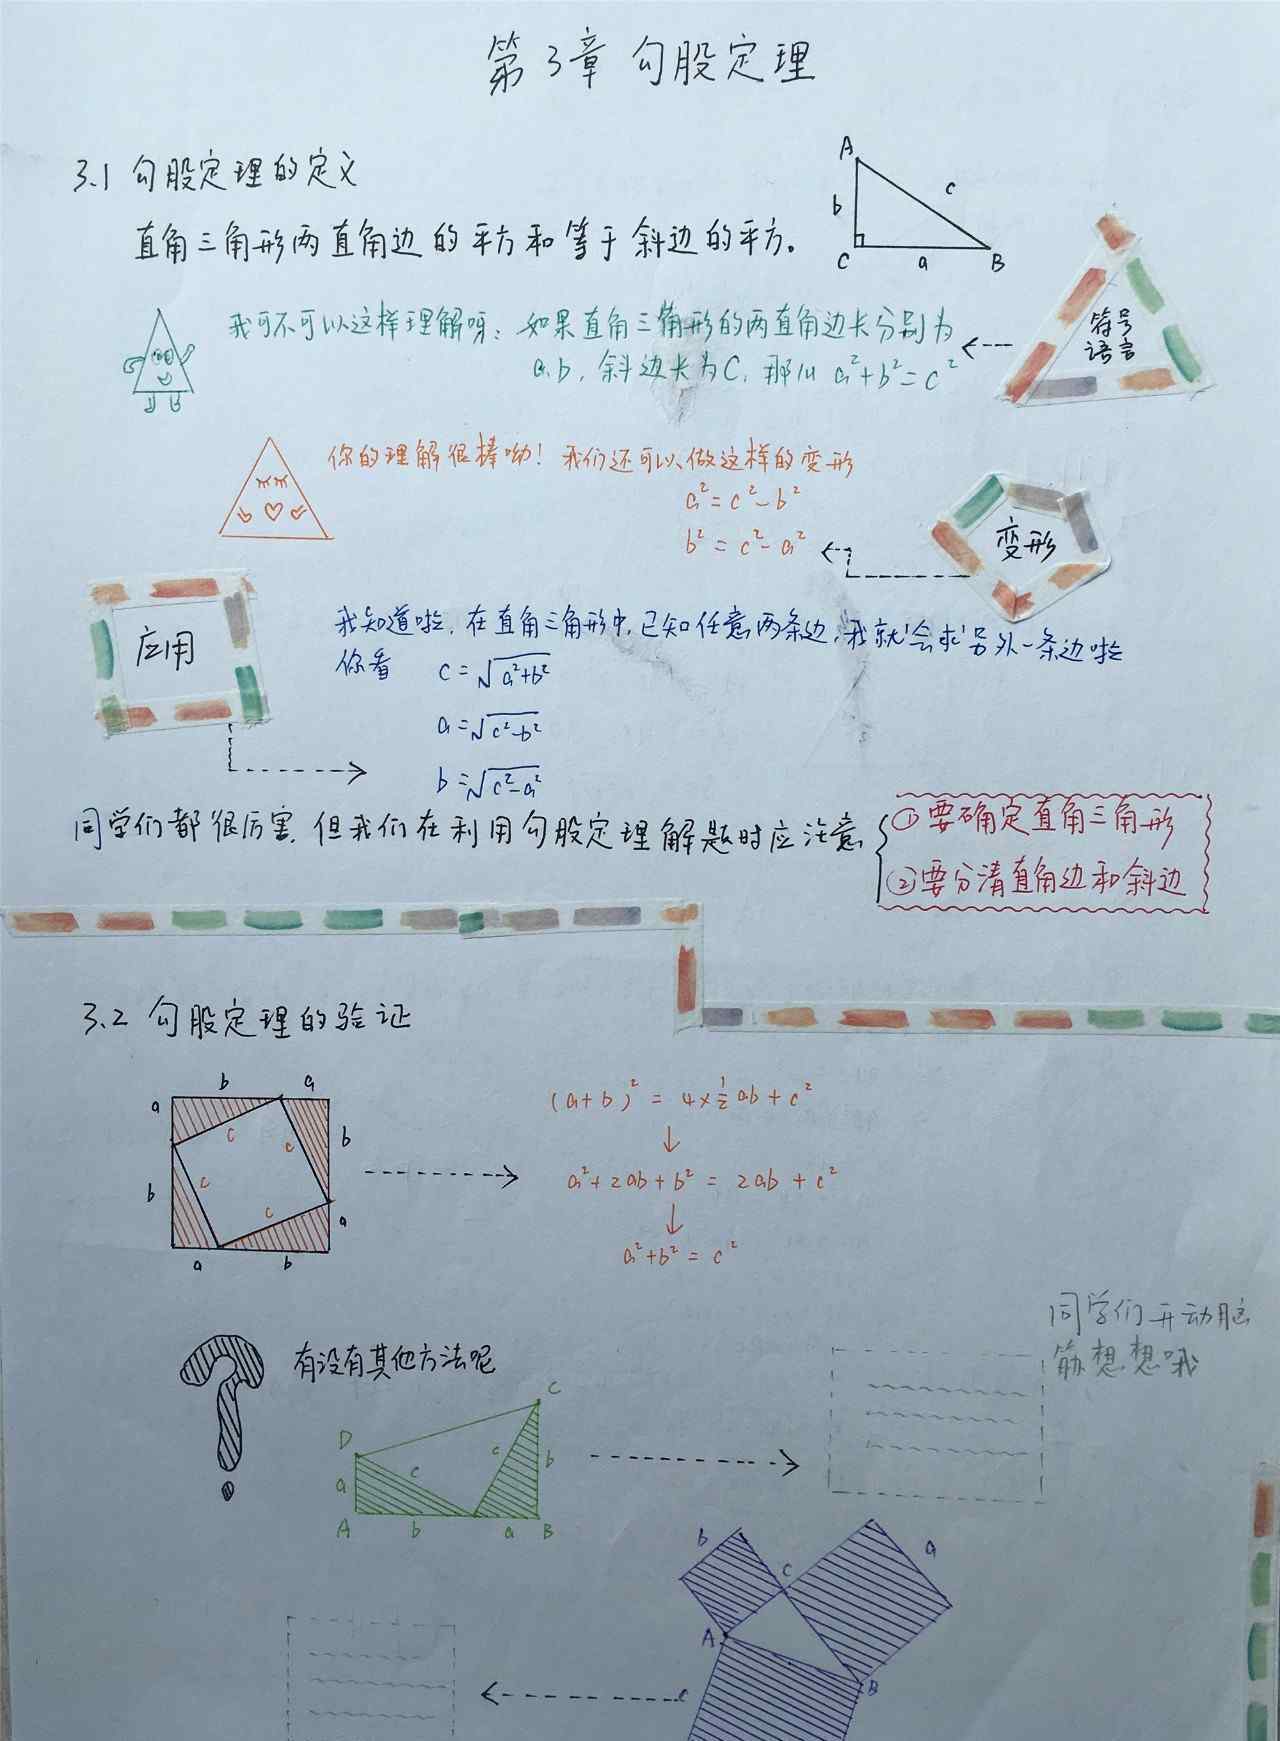 第3章 勾股定理
3.1 勾股定理的定义
直角三角形两直角边的平方和等于斜边的平方。
A
b
c
C
a
B
符号
语言
我可不可以这样理解呀：如果直角三角形的两直角边长分别为
a,b，斜边长为C，那么 a²+b²=c²
你的理解很棒呦！我们还可以做这样的变形
a²=c²-b²
b²=c²-a²
变形
应用
我知道啦，在直角三角形中，已知任意两条边，我就会求另外一条边啦
你看 c=√a²+b²
a=√c²-b²
b=√c²-a²
同学们都很厉害，但我们在利用勾股定理解题时应注意
①要确定直角三角形
②要分清直角边和斜边
3.2 勾股定理的验证
b
a
a
c
c
b
b
c
c
a
a
b
(a+b)²=4×1/2ab+c²
a²+2ab+b²=2ab+c²
a²+b²=c²
有没有其他方法呢
同学们开动脑
筋想想哦
C
D
c
c
b
a
A
b
a
B
b
C
a
A
B
c